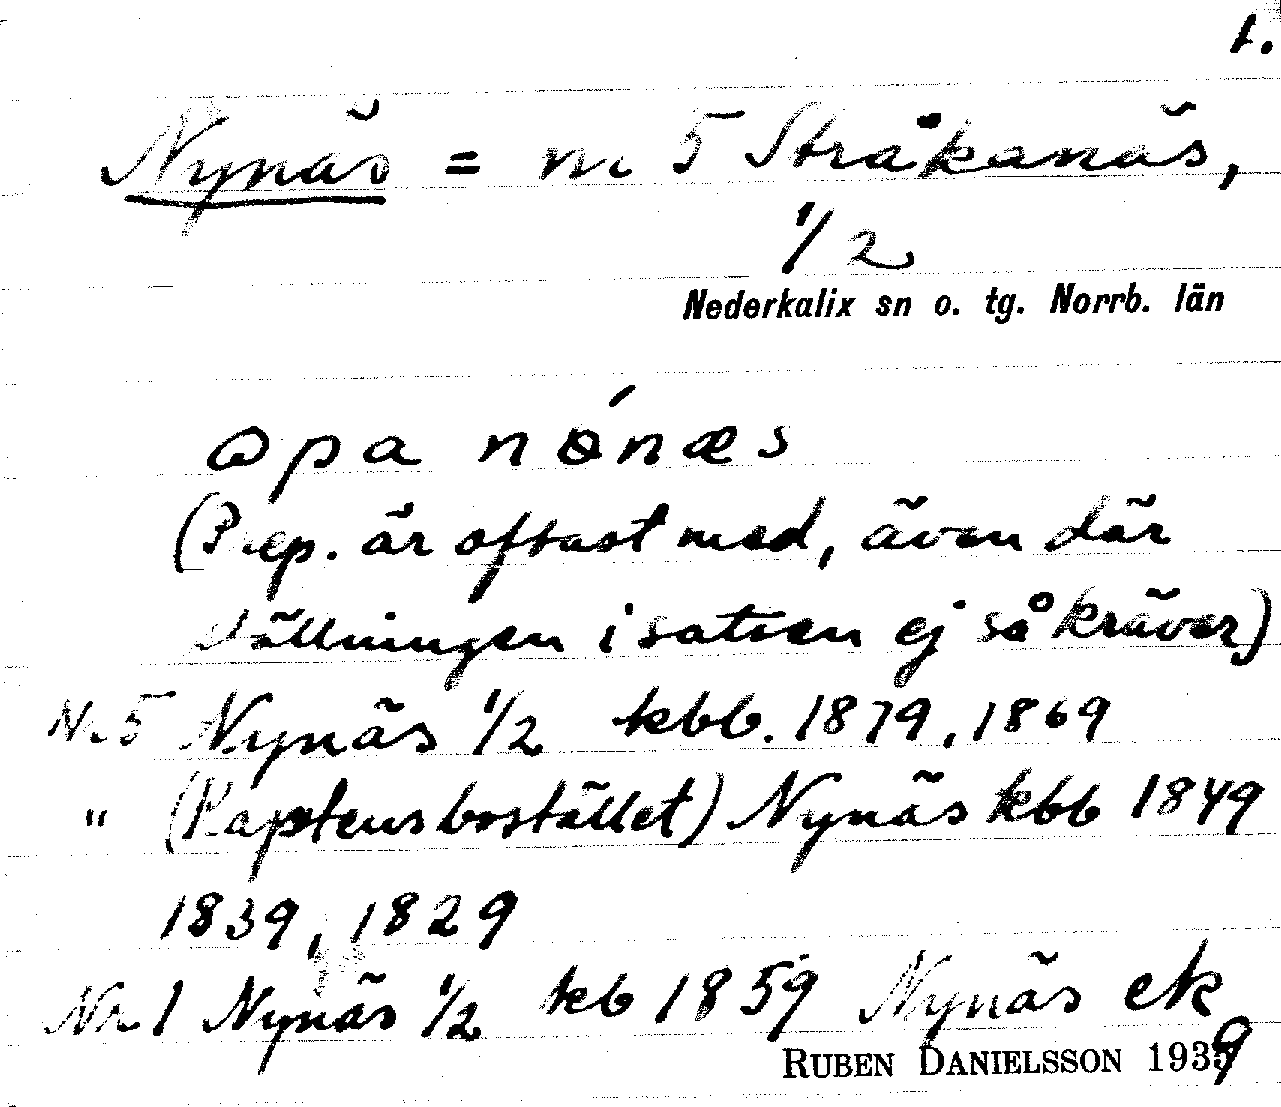 1.
Nynäs = nr 5 Stråkanäs,
1/2
Nederkalix sn o. tg. Norrb. län
opa nǿnæs
(Prep. är oftast med, även där
ställningen i satsen ej så kräver)
Nr 5 Nynäs 1/2 kbb. 1879, 1869
" (Kaptensbostället) Nynäs kbb 1849
1839, 1829
Nr 1 Nynäs 1/2 kb 1859 Nynäs ek
RUBEN DANIELSSON 1939